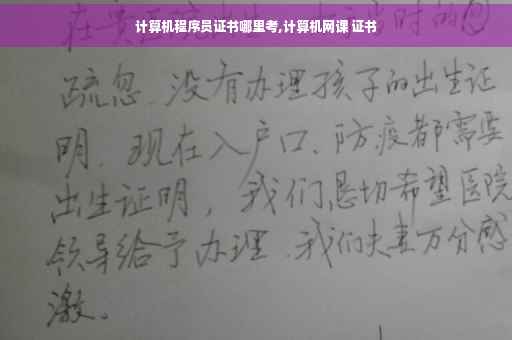 计算机程序员证书哪里考,计算机网课 证书
时的
疏忽、没有办理孩子的出生证
明、现在入户口、防疫都需要
出生证明，我们恳切希望医院
领导给予办理、我们夫妻万分感
激。